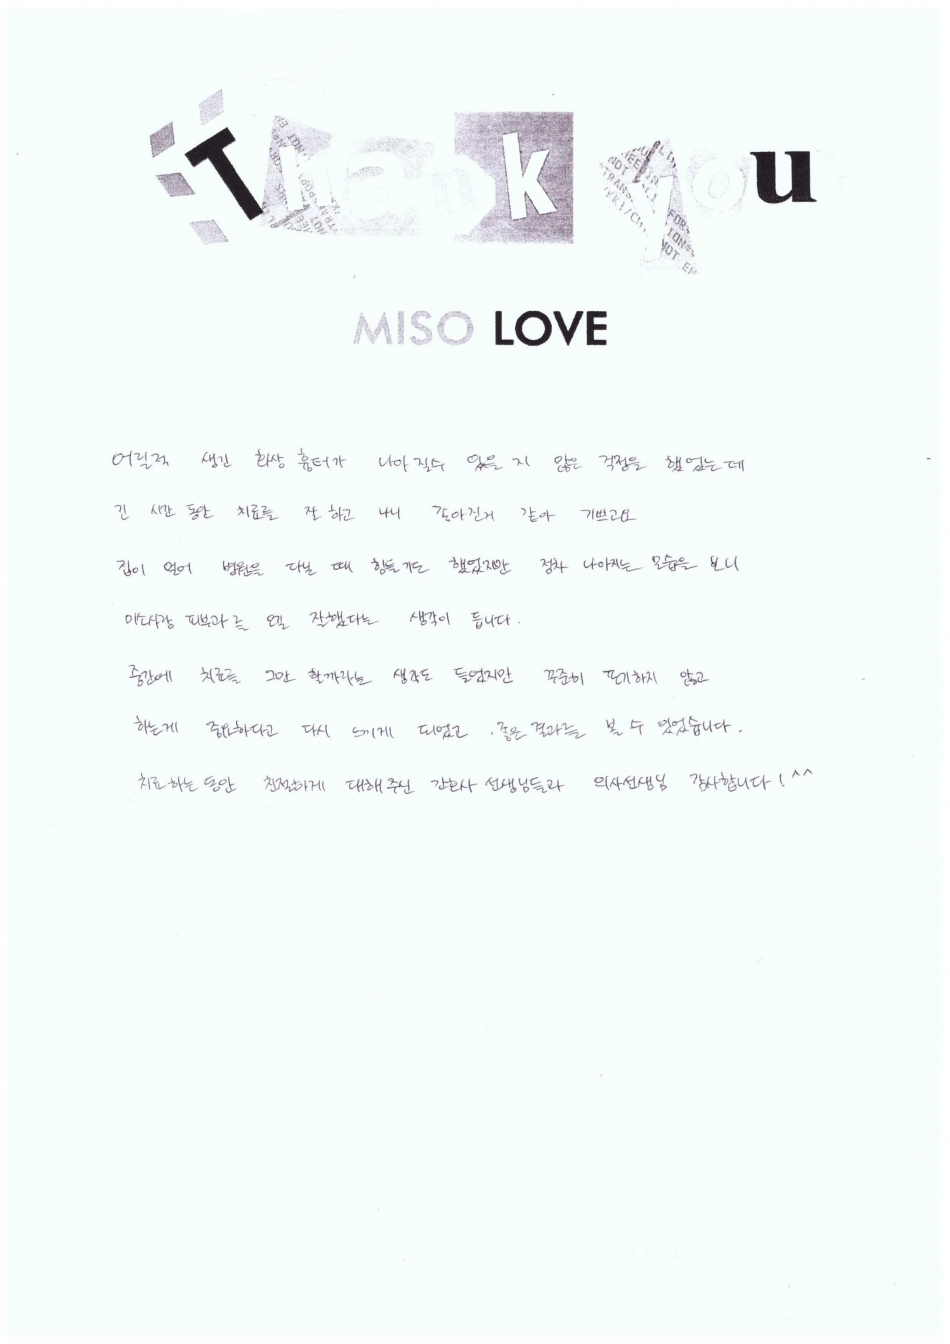 Thank you
MISO LOVE
어릴적 생긴 화상 흉터가 나아 질수 있을 지 않은 걱정을 했었는데
긴 시간 동안 치료를 잘 하고 나니 좋아진거 같아 기쁘고요
집이 멀어 병원을 다닐 때 힘들기도 했었지만 점차 나아지는 모습을 보니
미소사랑 피부과를 오길 잘했다는 생각이 듭니다.
중간에 치료를 그만 할까라는 생각도 들었지만 꾸준히 포기하지 않고
하는게 중요하다고 다시 느끼게 되었고, 좋은 결과를 볼 수 있었습니다.
치료하는 동안 친절하게 대해주신 간호사 선생님들과 의사선생님 감사합니다! ^^